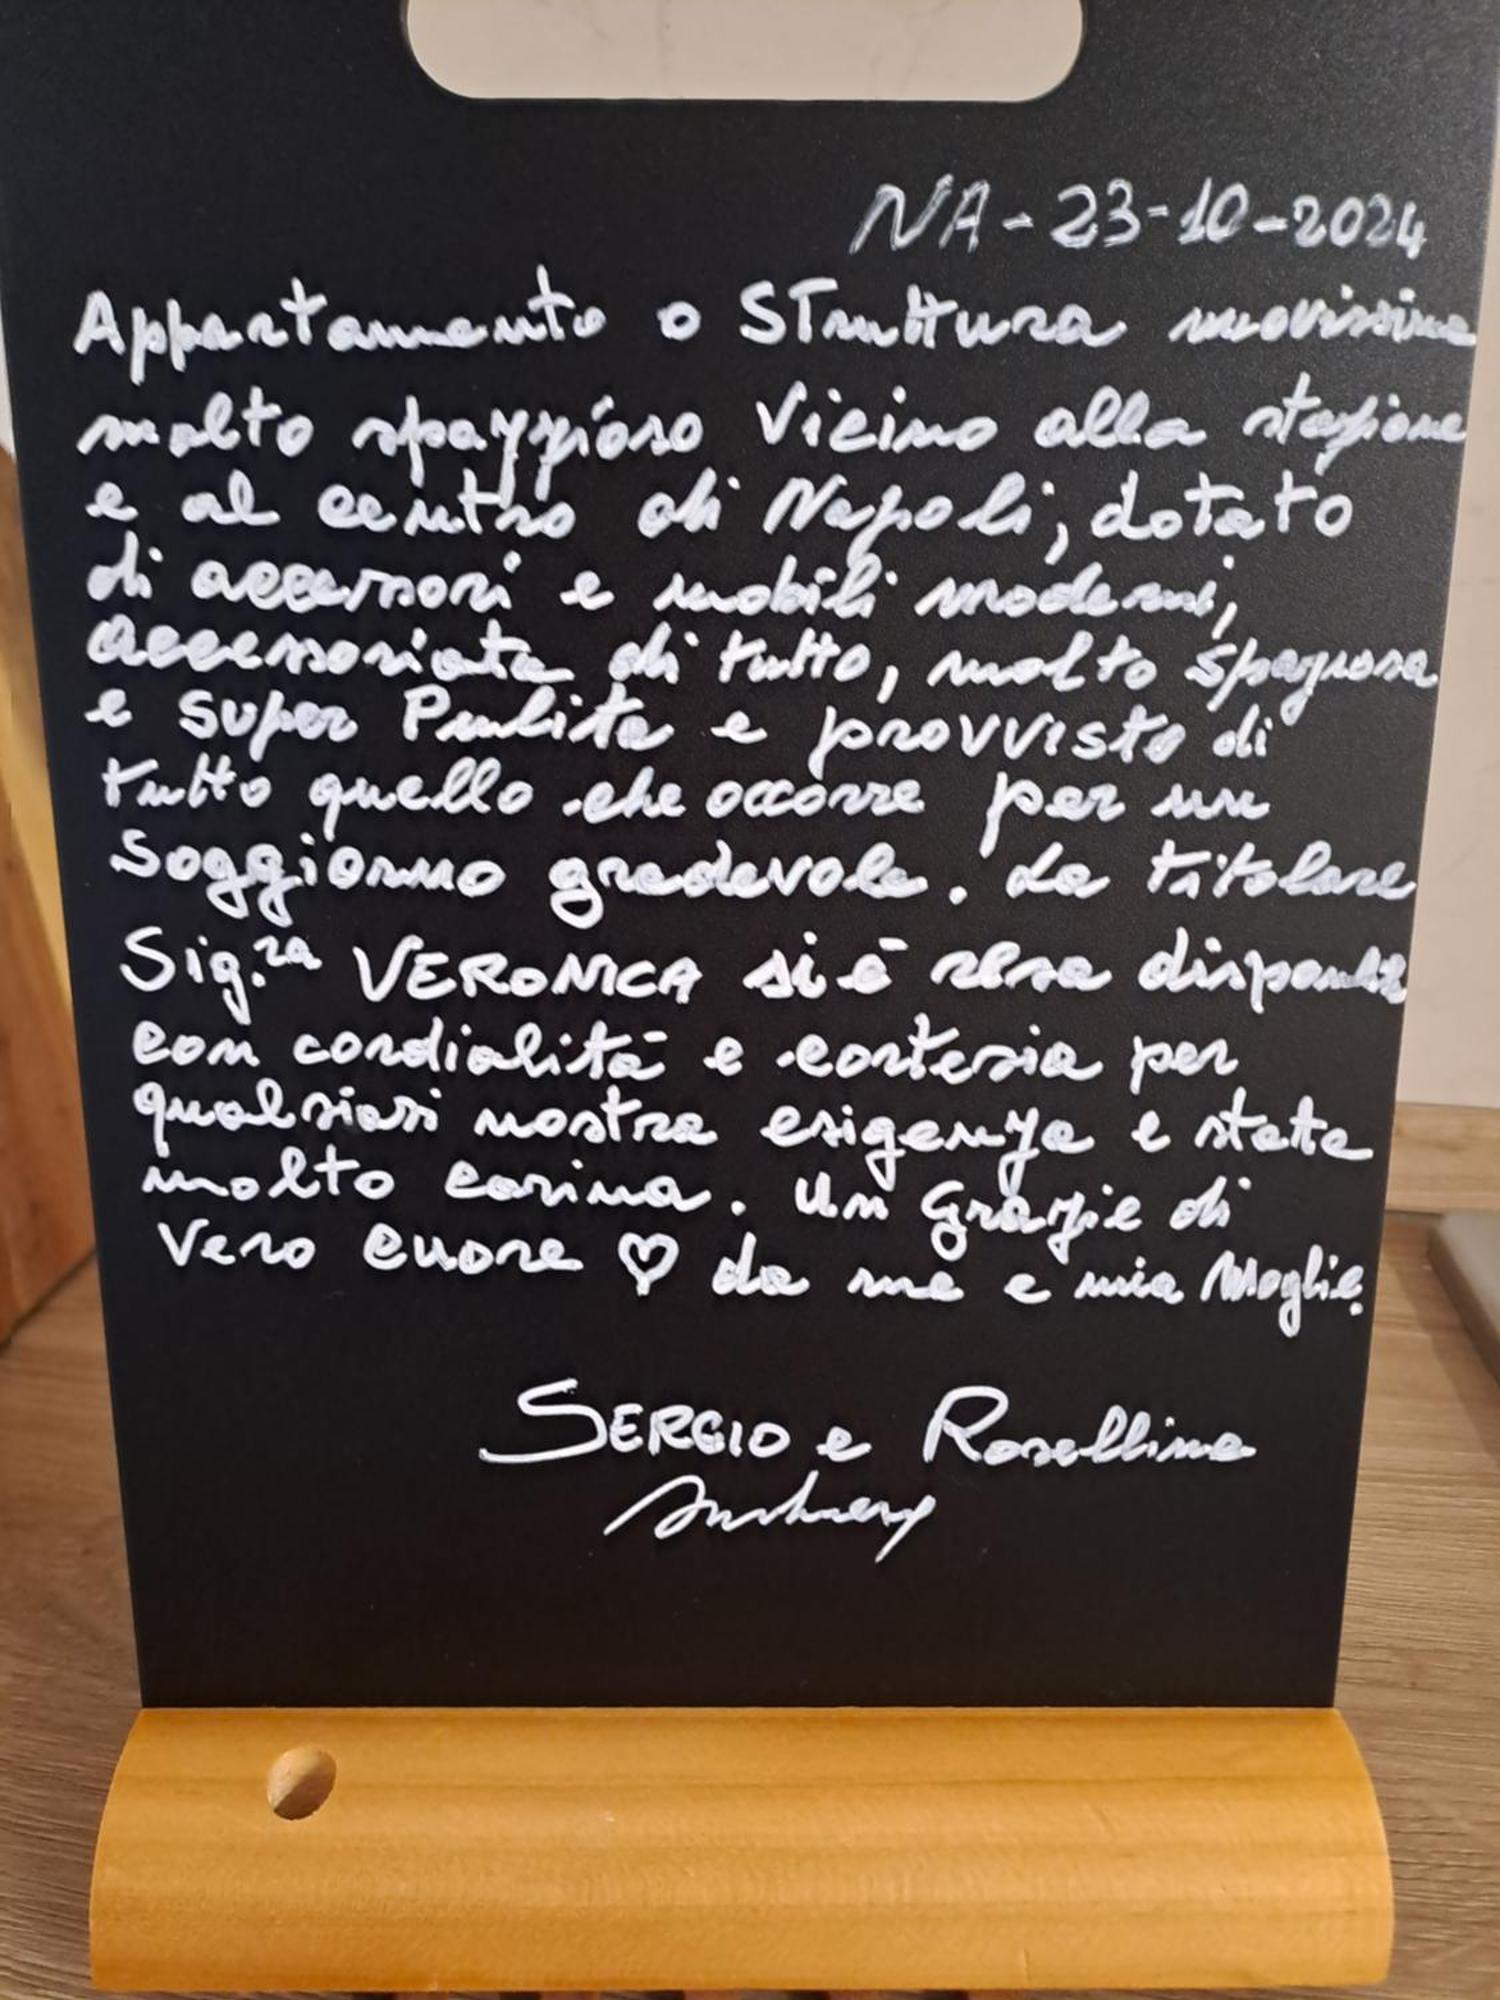 NA-23-10-2024
Appartamento o STruttura nuovissima
molto spazzioso Vicino alla stazione
e al centro di Napoli, dotato
di accessori e mobili moderni,
accessoriata di tutto, molto spaziosa
e super Pulita e provvisto di
tutto quello che occorre per un
Soggiorno gradevole. La titolare
Sig.ra VERONICA si è resa disponibile
con cordialità e cortesia per
qualsiasi nostra esigenza e stata
molto carina. Un Grazie di
Vero cuore ♡ da me e mia Moglie.
SERGIO e Rosellina